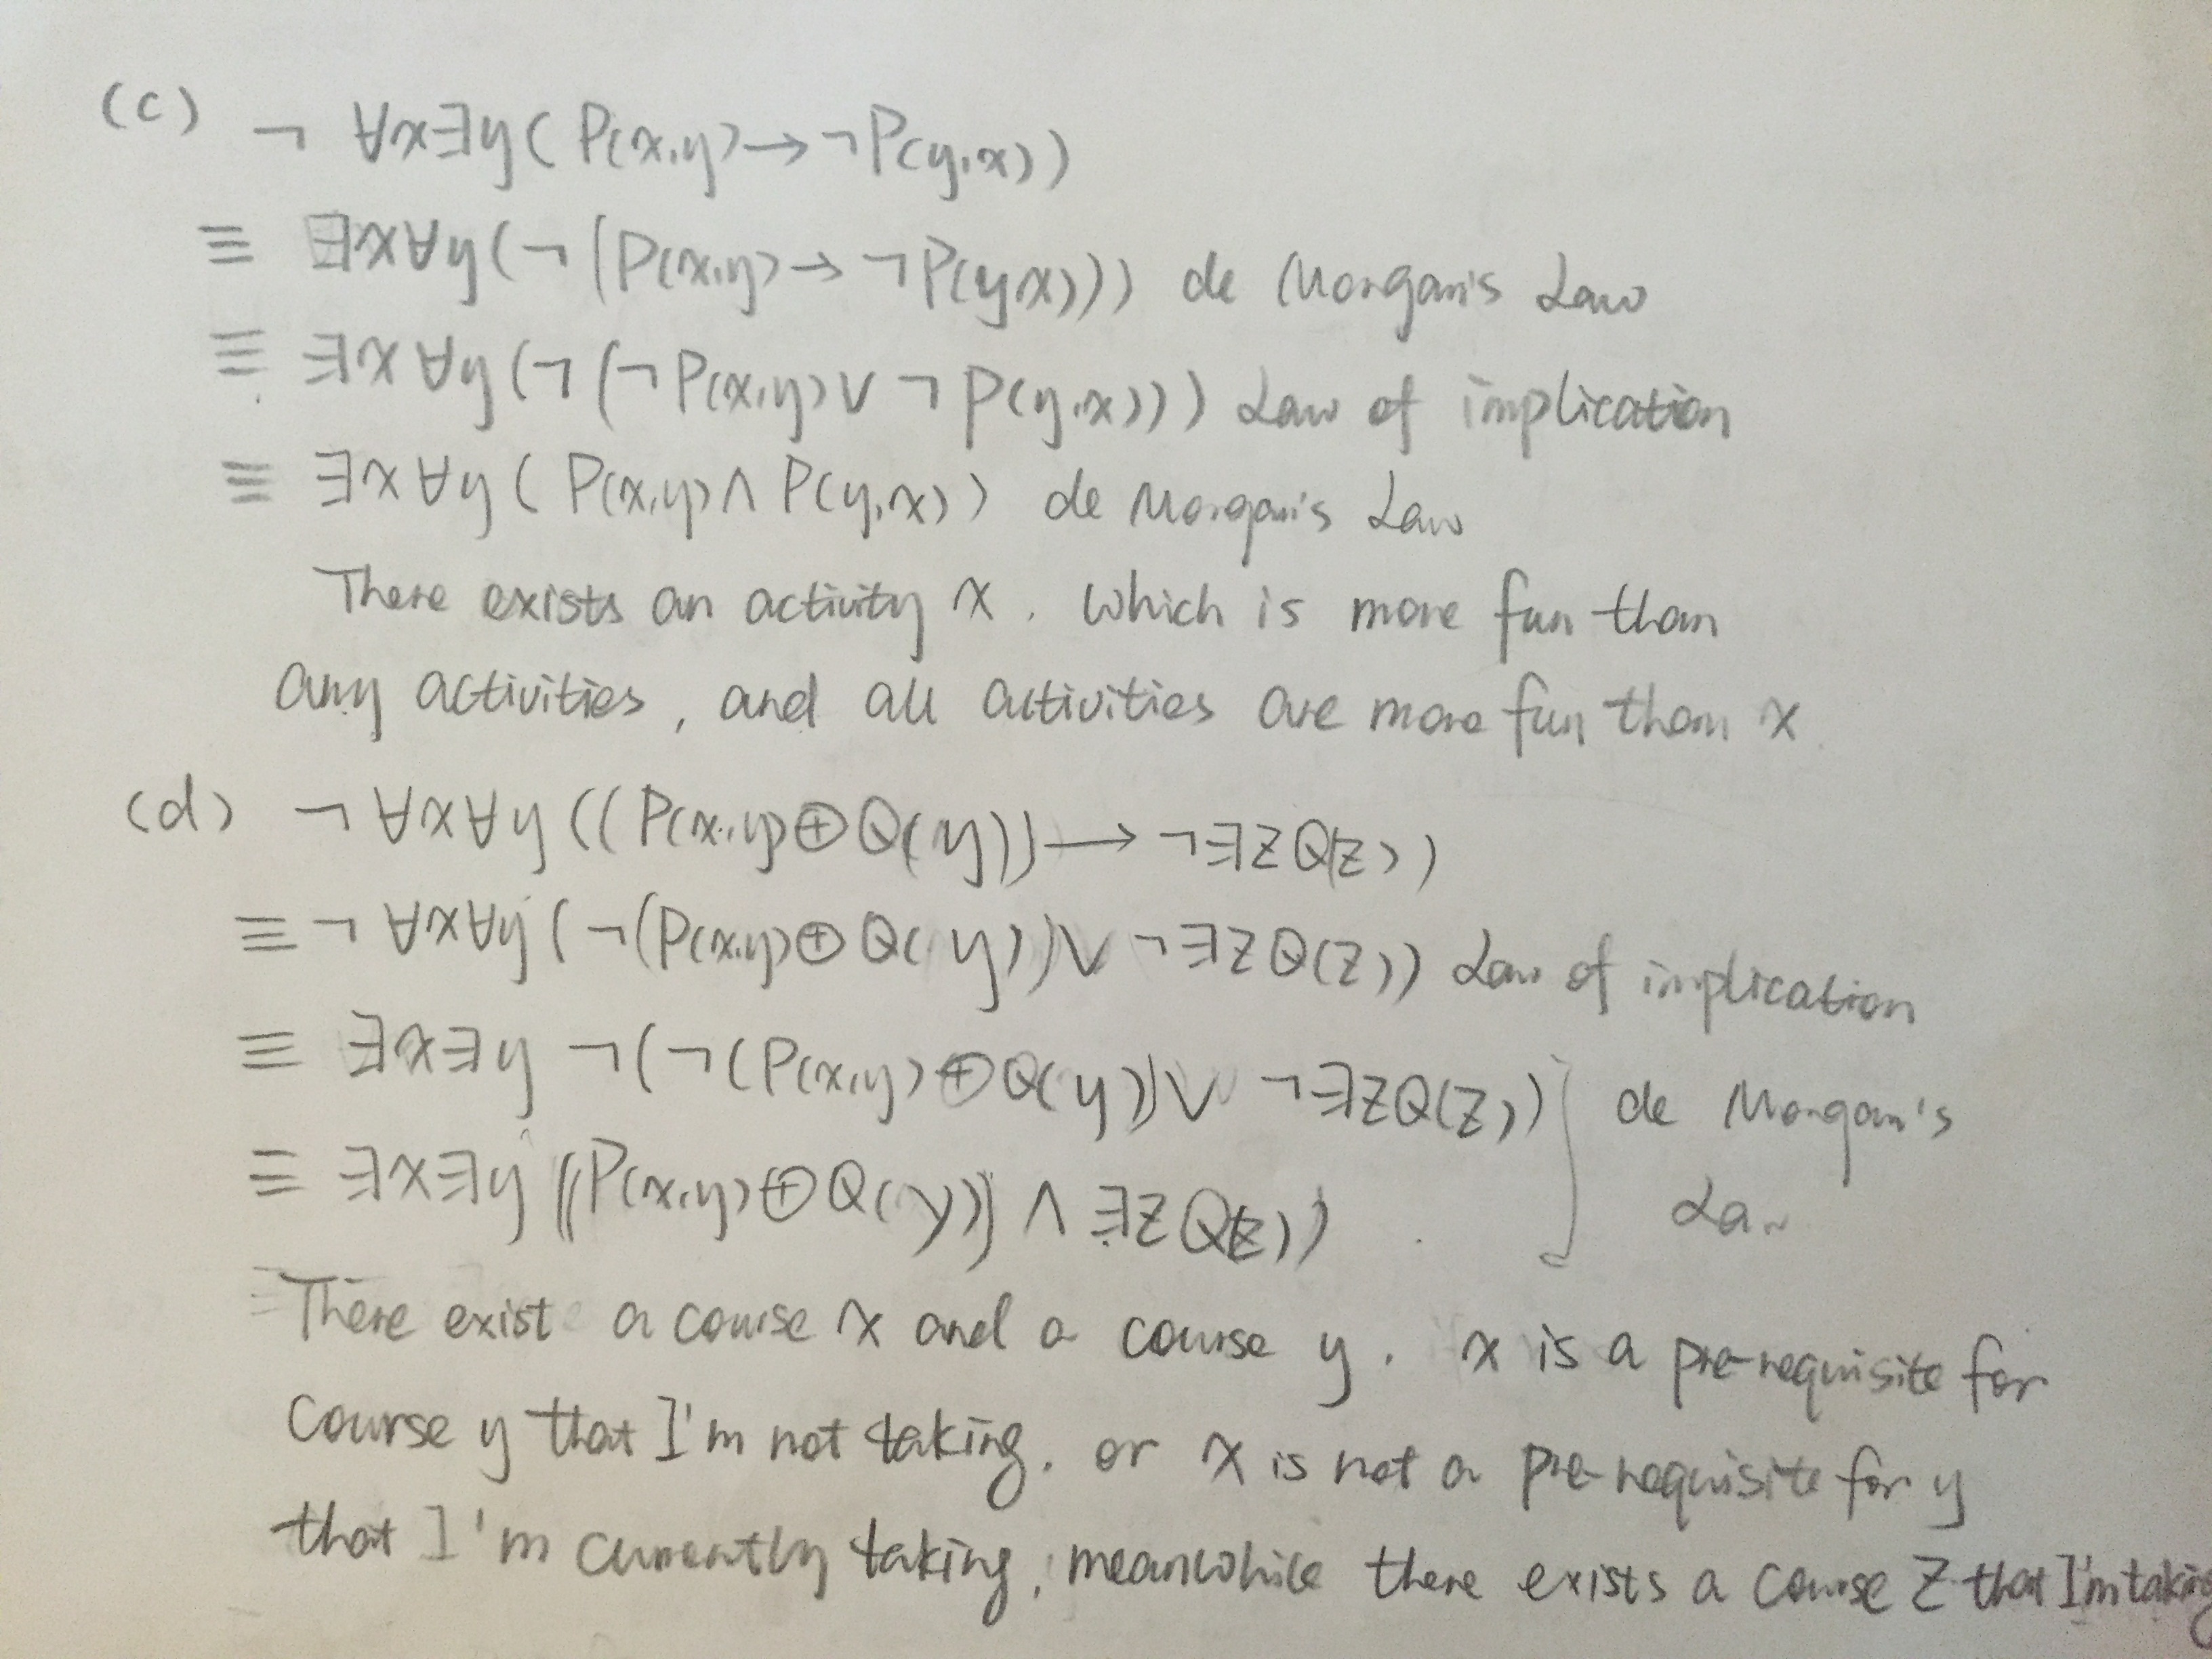 (c) ¬ ∀x∃y( P(x,y) → ¬P(y,x))
≡ ∃x∀y(¬(P(x,y) → ¬P(y,x))) de Morgan's Law
≡ ∃x∀y(¬(¬P(x,y) ∨ ¬P(y,x))) Law of implication
≡ ∃x∀y( P(x,y) ∧ P(y,x)) de Morgan's Law
There exists an activity x. which is more fun than
any activities, and all activities are more fun than x
(d) ¬ ∀x∀y((P(x,y)⊕Q(y)) → ¬∃zQ(z))
≡ ¬ ∀x∀y(¬(P(x,y)⊕Q(y)) ∨ ¬∃zQ(z)) Law of implication
≡ ∃x∃y ¬(¬(P(x,y)⊕Q(y)) ∨ ¬∃zQ(z)) de Morgan's
≡ ∃x∃y ((P(x,y)⊕Q(y)) ∧ ∃zQ(z)) Law
There exist a course x and a course y. x is a pre-requisite for
course y that I'm not taking, or x is not a pre-requisite for y
that I'm currently taking, meanwhile there exists a course z that I'm taking